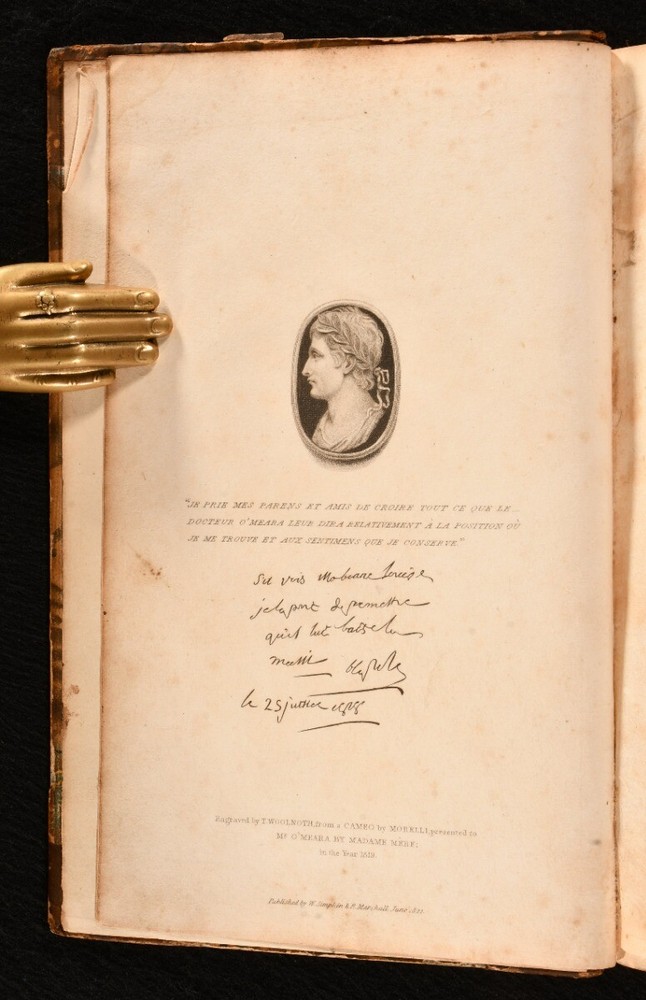 "JE PRIE MES PARENS ET AMIS DE CROIRE TOUT CE QUE LE
DOCTEUR O'MEARA LEUR DIRA RELATIVEMENT A LA POSITION OÙ
JE ME TROUVE ET AUX SENTIMENS QUE JE CONSERVE."
bonne
je la de permettre
qu'il lui
le 25
Engraved by T. WOOLNOTH, from a CAMEO by MORELLI, presented to
Mr O'MEARA BY MADAME MERE;
in the Year 1818.
Published by W. Simpkin & R. Marshall, June 1822.